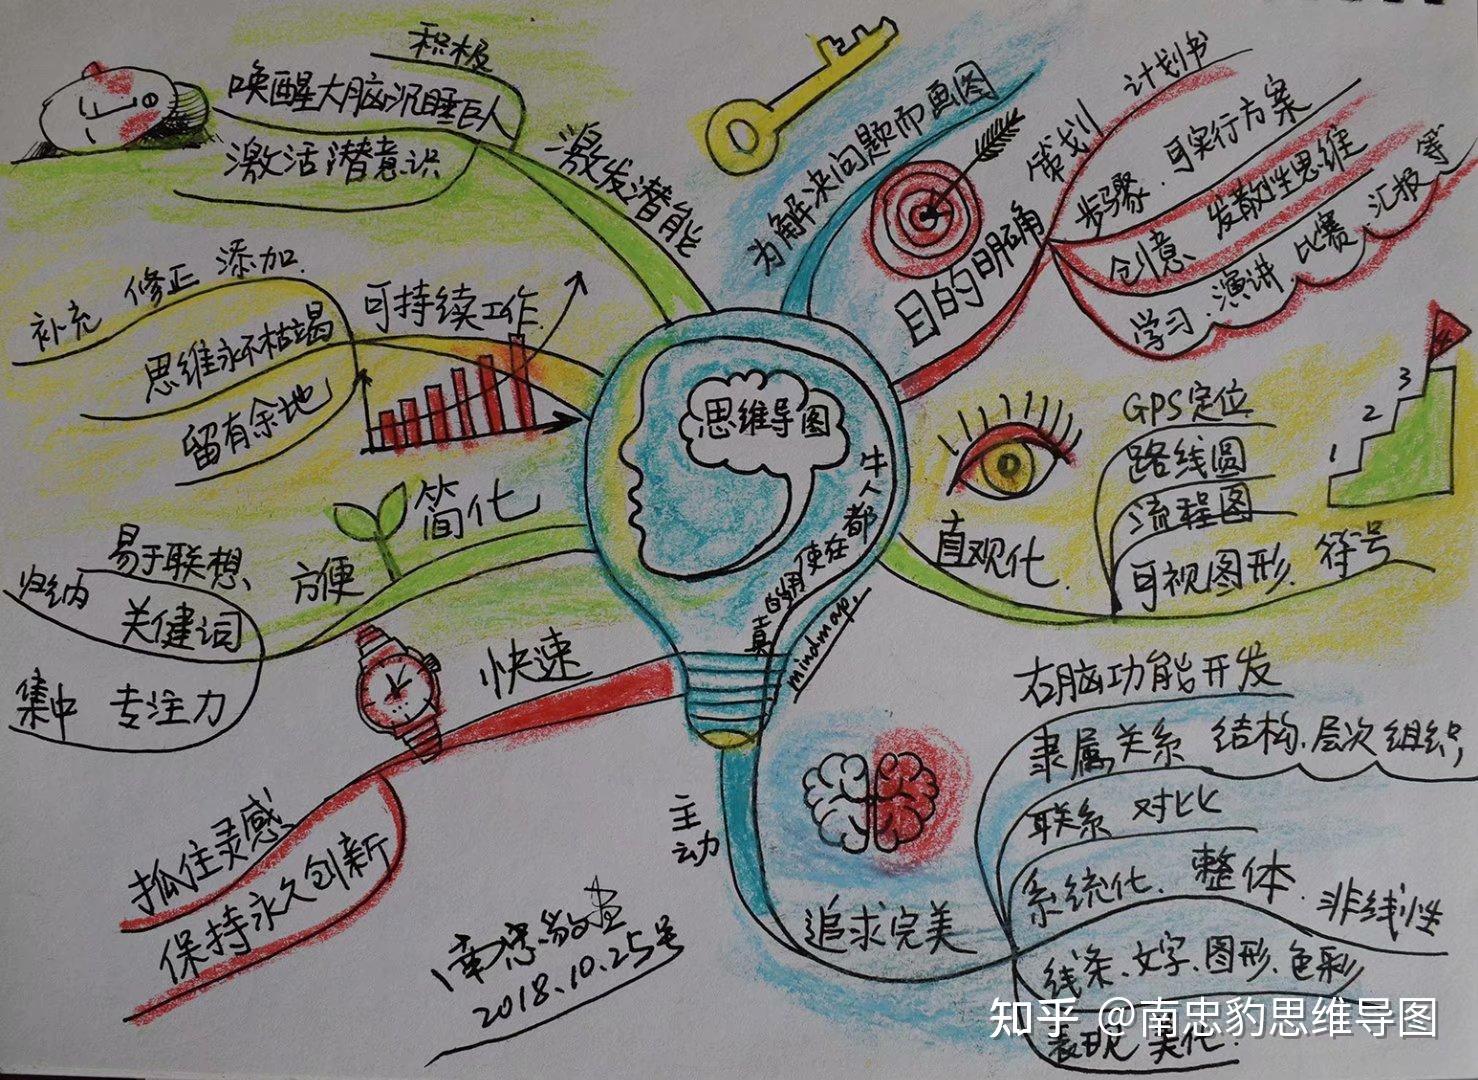 思维导图
牛人都在使用的
真
mindmap.
为解决问题而画图
目的明确
策划 计划书
步骤、可实行方案
创意、发散性思维
学习、演讲 比赛、汇报 等
直观化.
GPS定位
路线圆
流程图
可视图形、符号
1
2
3
追求完美
右脑功能开发
隶属关系 结构、层次组织
联系 对比
系统化、整体、非线性
线条、文字、图形、色彩
表现 美化.
主动
快速
抓住灵感、
保持永久创新
简化
方便
易于联想、
归纳 关健词
集中 专注力
可持续工作
补充 修正 添加.
思维永不枯竭
留有余地
激发潜能
积极
唤醒大脑沉睡巨人
激活潜意识
2018.10.25号
知乎 @南忠豹思维导图